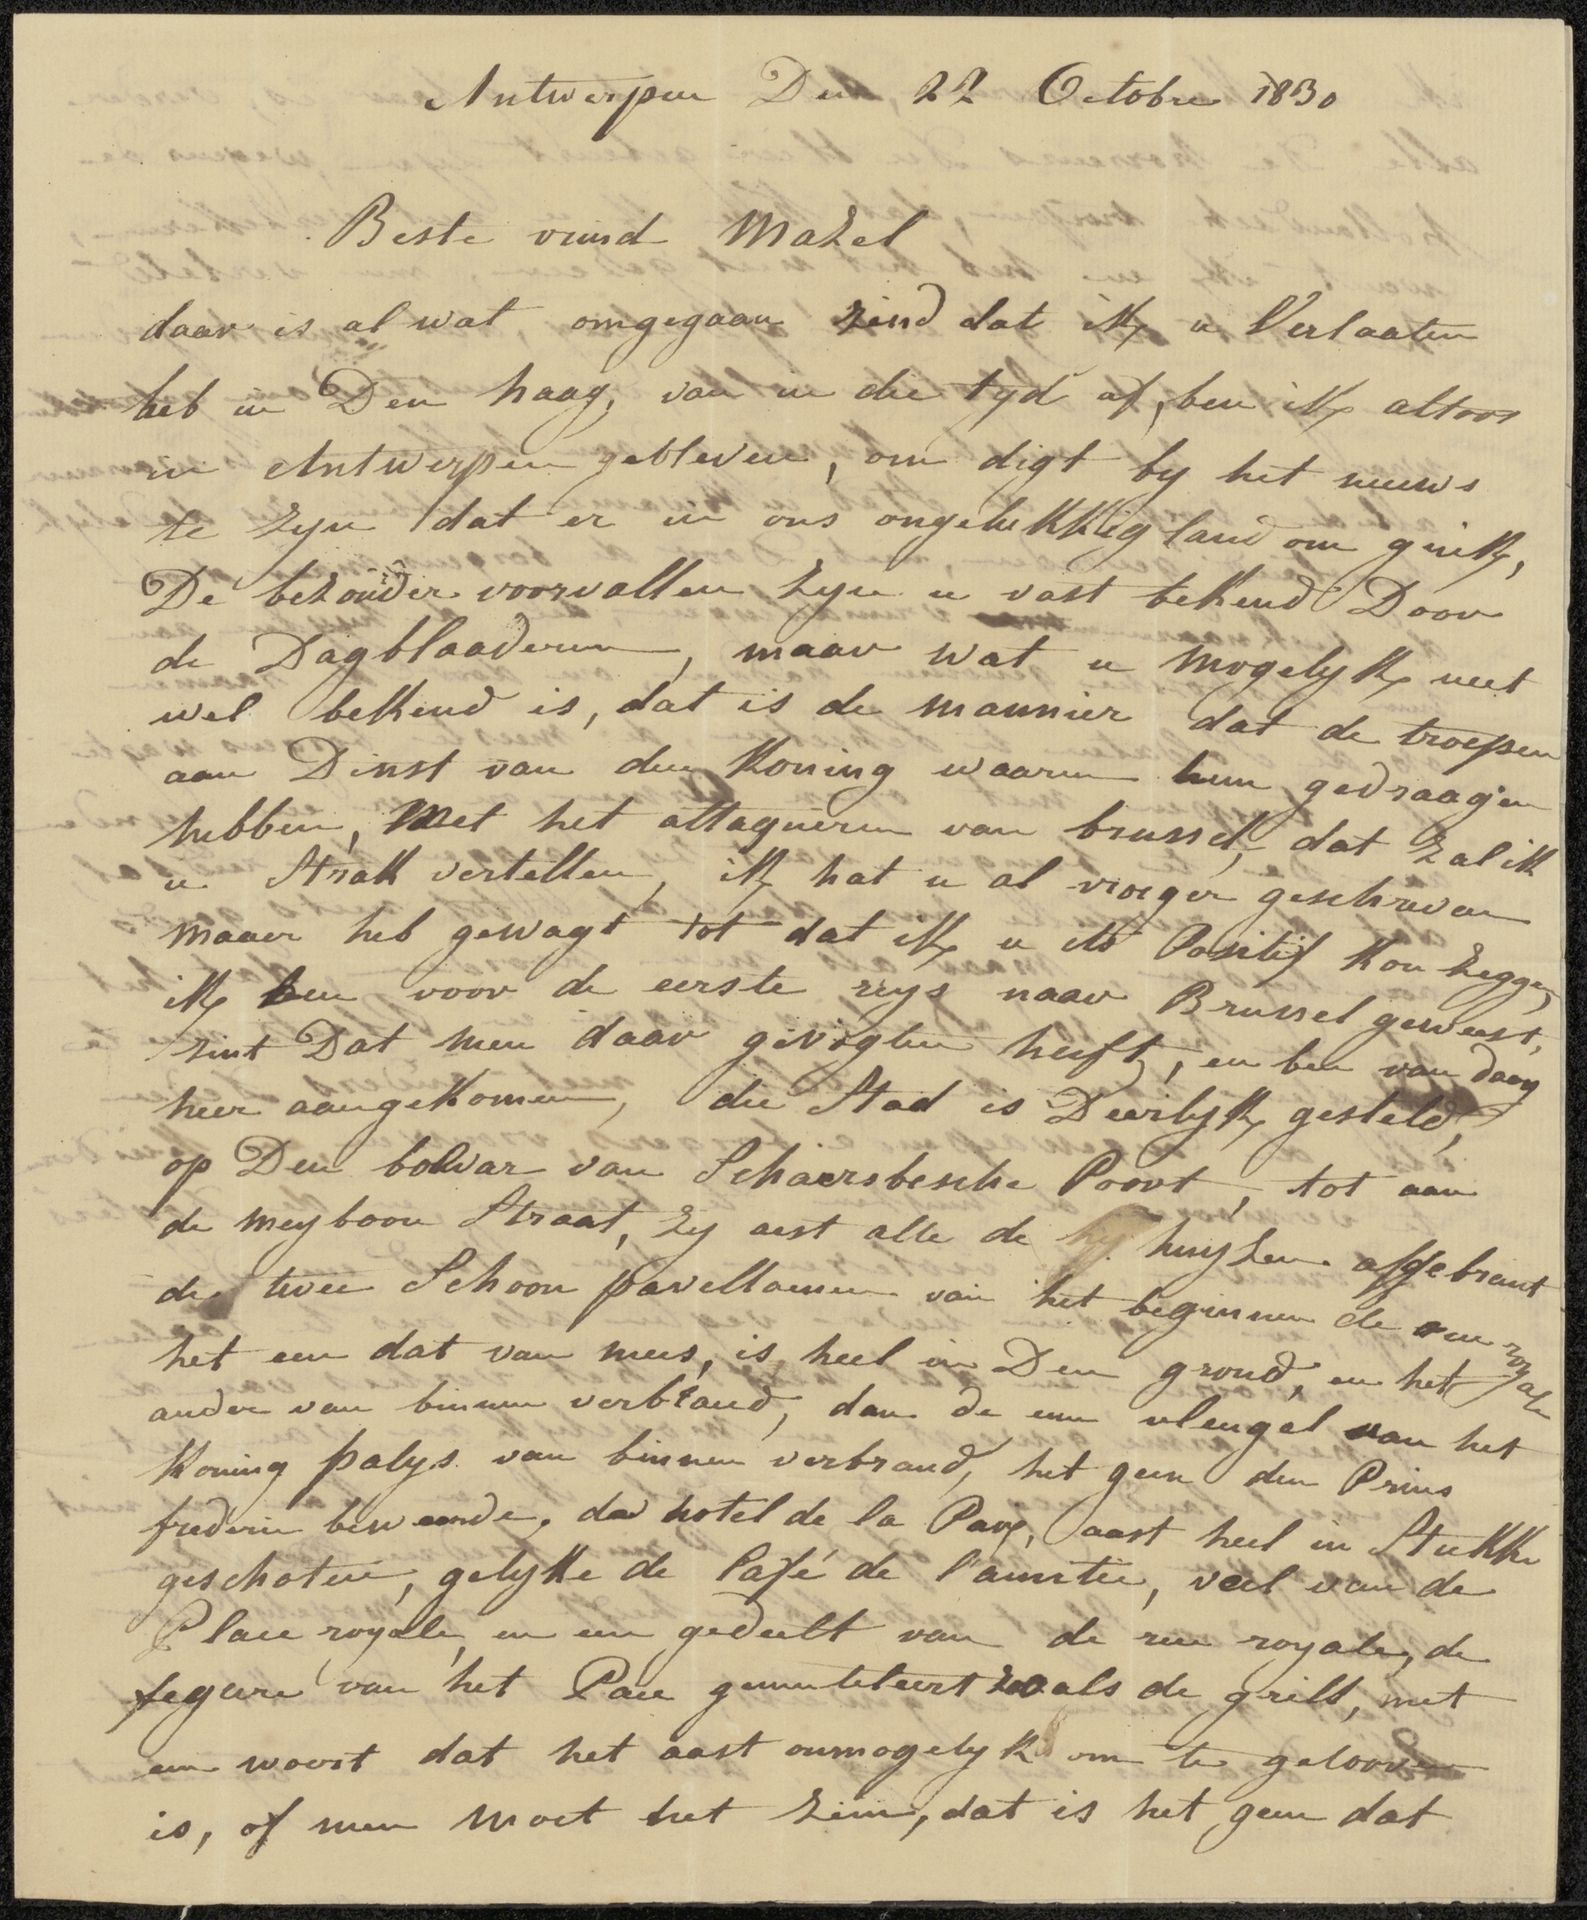 Antwerpen Den 22 Octobre 1830
Beste vrind Mazel
daar is al wat omgegaan zind dat ik u Verlaaten
heb in Den haag, van in die tyd af, ben ik altoos
in Antwerpen gebleven, om digt by het nieuws
te zyn dat er in ons ongelukkig land om gink,
De bezonder voorvallen zyn u vast bekend Door
de Dagblaaderen, maar wat u mogelyk niet
wel bekend is, dat is de mannier dat de troepen
aan Dinst van den Koning waaren hun gedraagen
hebben, Met het attaqueren van brussel, dat zal ik
u Strak vertellen, ik hat u al vroeger geschreven
maaer heb gewagt tot dat ik u its Positif kon zeggen,
ik ben voor de eerste reys naar Brussel geweest,
sint Dat men daar gevogten heeft, en ben van daag
heer aangekomen, die Stad is Deerlyk gesteld,
op Den bolvar van Schaersbesche Poort, tot aan
de meyboom Straat, zy aest alle de huyzen afgebrant
die twee Schoon pavelloenen van het beginnen de rue royale
het een dat van mees, is heel in Den grond, en het
ander van binnen verbrand, dan de een vleugel van het
Koning palys van binnen verbrand, het geen den Prins
frederic bewoonde, de hotel de la Paix, aast heel in Stukke
geschoten, gelykke de Café de l'amitié, veel van de
Place royale, en een gedeelt van de rue royale, de
fegure van het Parc gemuteleert zoo als de grill, met
een woort dat het aast onmogelyk om te gelooven
is, of men moet het zien, dat is het geen dat